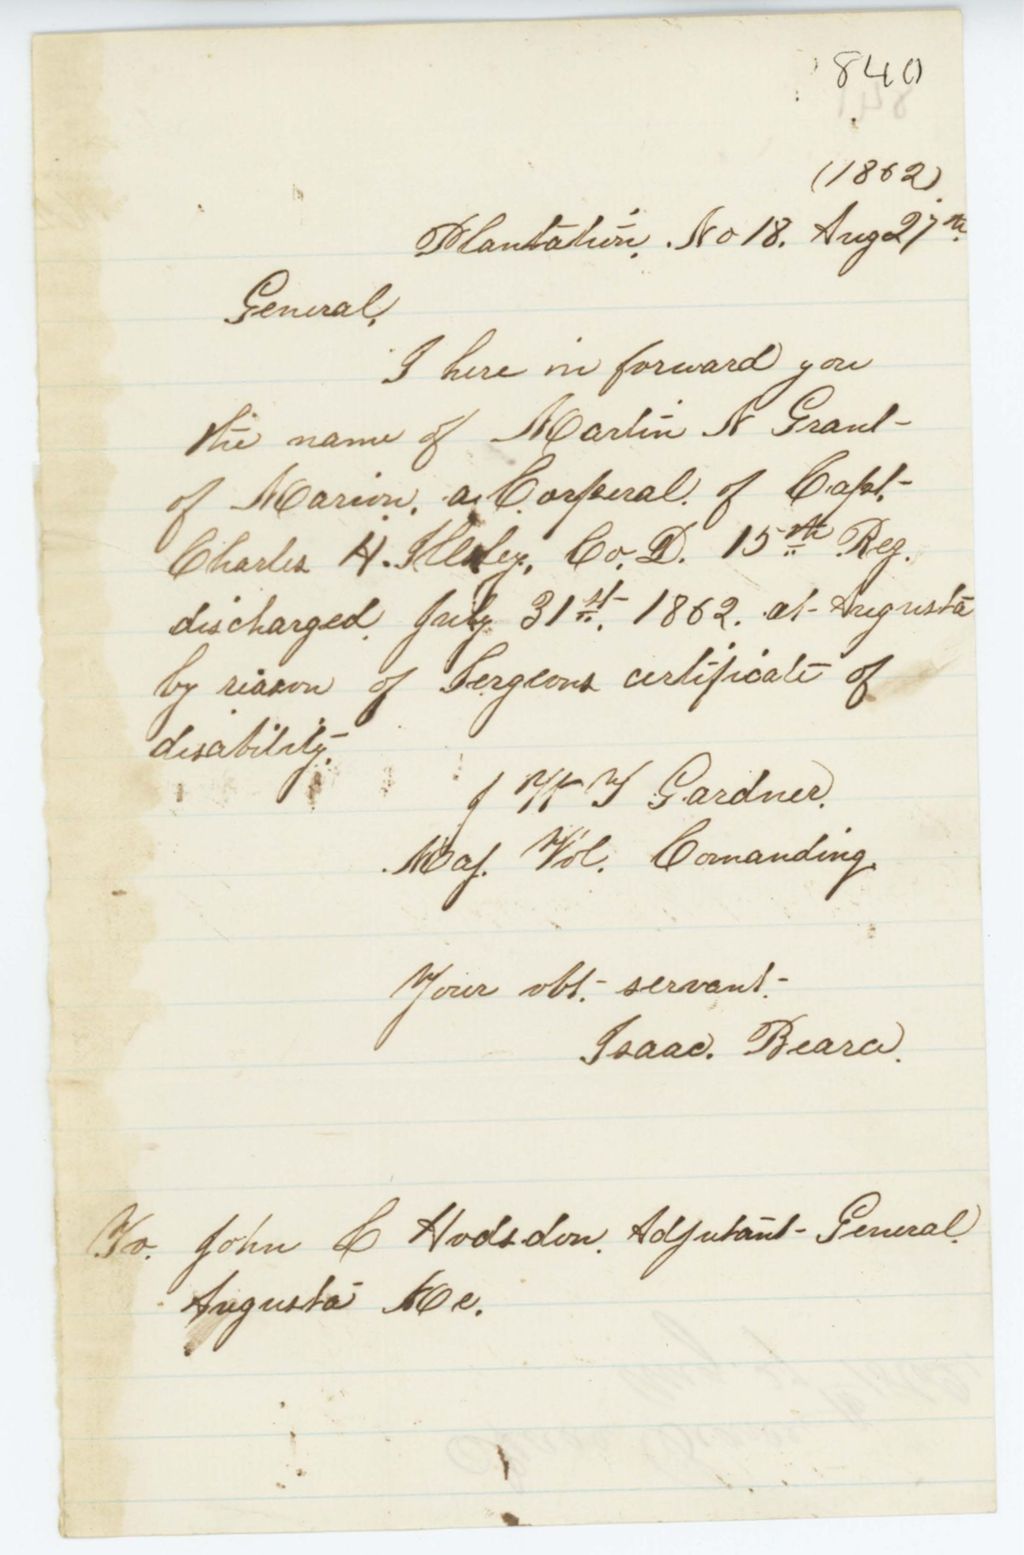 840
(1862)
Plantation. No 18. Aug 27th
General,
I here in forward you
the name of Martin N Grant
of Marion. a Corporal. of Capt.
Charles H. Illsley, Co. D. 15th Reg.
discharged July 31st. 1862. at Augusta
by reason of Sergeons certificate of
disability.
J W T Gardner.
Maj. Vol. Comanding.
Your obt. servant.
Isaac.
To. John C Hodsdon. Adjutant General.
Augusta Me.